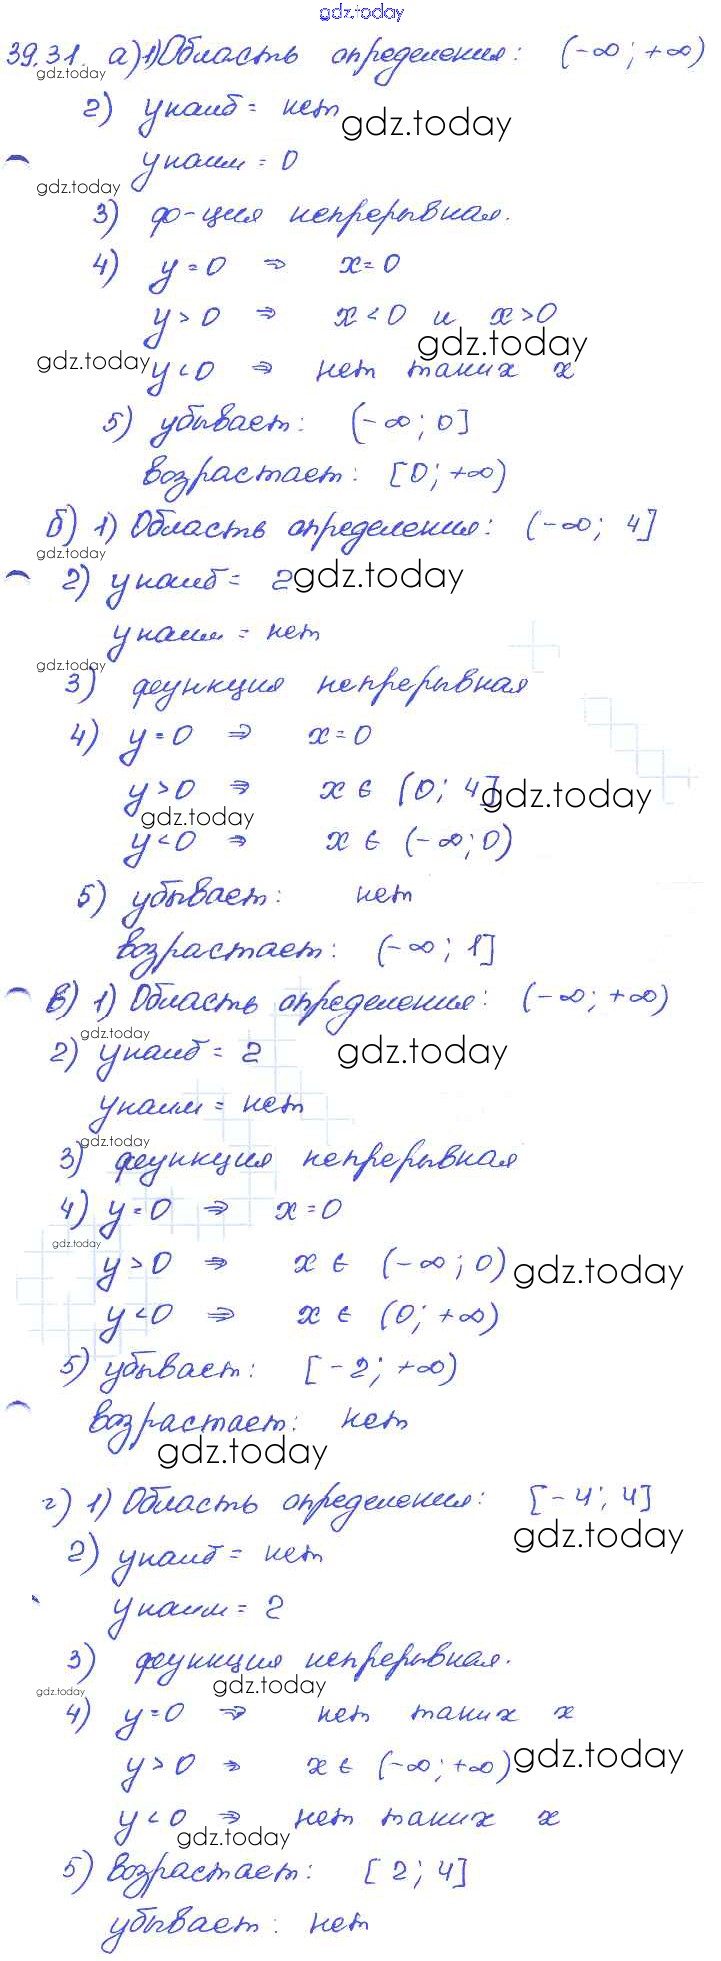 gdz.today
39.31. а) 1) Область определения: (-∞; +∞)
gdz.today
2) yнаиб = нет
gdz.today
yнаим = 0
gdz.today
3) ф-ция непрерывная.
4) y = 0 ⇒ x = 0
y > 0 ⇒ x < 0 и x > 0
gdz.today
gdz.today
y < 0 ⇒ нет таких x
5) убывает: (-∞; 0]
возрастает: [0; +∞)
б) 1) Область определения: (-∞; 4]
gdz.today
2) yнаиб = 2
gdz.today
yнаим = нет
gdz.today
3) функция непрерывная
4) y = 0 ⇒ x = 0
y > 0 ⇒ x ∈ (0; 4]
gdz.today
gdz.today
y < 0 ⇒ x ∈ (-∞; 0)
5) убывает: нет
возрастает: (-∞; 1]
в) 1) Область определения: (-∞; +∞)
gdz.today
2) yнаиб = 2
gdz.today
yнаим = нет
gdz.today
3) функция непрерывная
4) y = 0 ⇒ x = 0
gdz.today
y > 0 ⇒ x ∈ (-∞; 0)
gdz.today
y < 0 ⇒ x ∈ (0; +∞)
5) убывает: [-2; +∞)
возрастает: нет
gdz.today
г) 1) Область определения: [-4; 4]
gdz.today
2) yнаиб = нет
yнаим = 2
3) функция непрерывная.
gdz.today
gdz.today
4) y = 0 ⇒ нет таких x
y > 0 ⇒ x ∈ (-∞; +∞)
gdz.today
y < 0 ⇒ нет таких x
gdz.today
5) возрастает: [2; 4]
убывает: нет